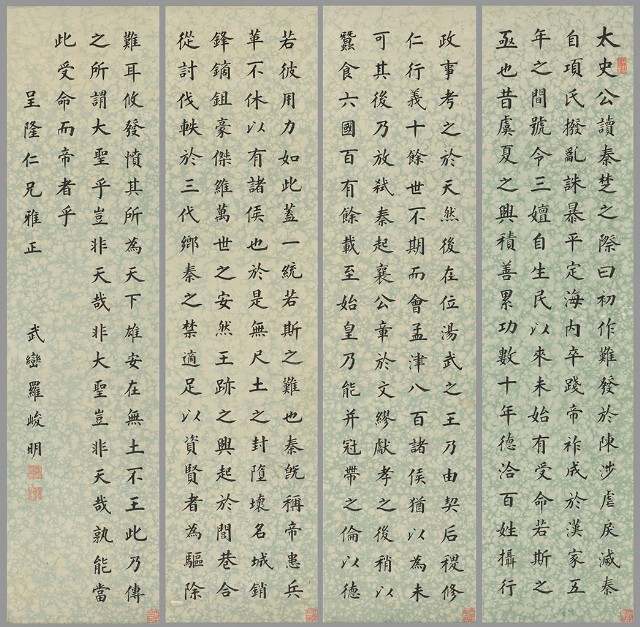 太史公讀秦楚之際曰初作難發於陳涉虐戾滅秦
自項氏撥亂誅暴平定海內卒踐帝祚成於漢家五
年之間號令三嬗自生民以來未始有受命若斯之
亟也昔虞夏之興積善累功數十年德洽百姓攝行
政事考之於天然後在位湯武之王乃由契后稷修
仁行義十餘世不期而會孟津八百諸侯猶以為未
可其後乃放弒秦起襄公章於文繆獻孝之後稍以
蠶食六國百有餘載至始皇乃能并冠帶之倫以德
若彼用力如此蓋一統若斯之難也秦既稱帝患兵
革不休以有諸侯也於是無尺土之封墮壞名城銷
鋒鏑鉏豪傑維萬世之安然王跡之興起於閭巷合
從討伐軼於三代鄉秦之禁適足以資賢者為驅除
難耳攸發憤其所為天下雄安在無土不王此乃傳
之所謂大聖乎豈非天哉非大聖豈非天哉孰能當
此受命而帝者乎
呈隆仁兄雅正 武巒羅峻明